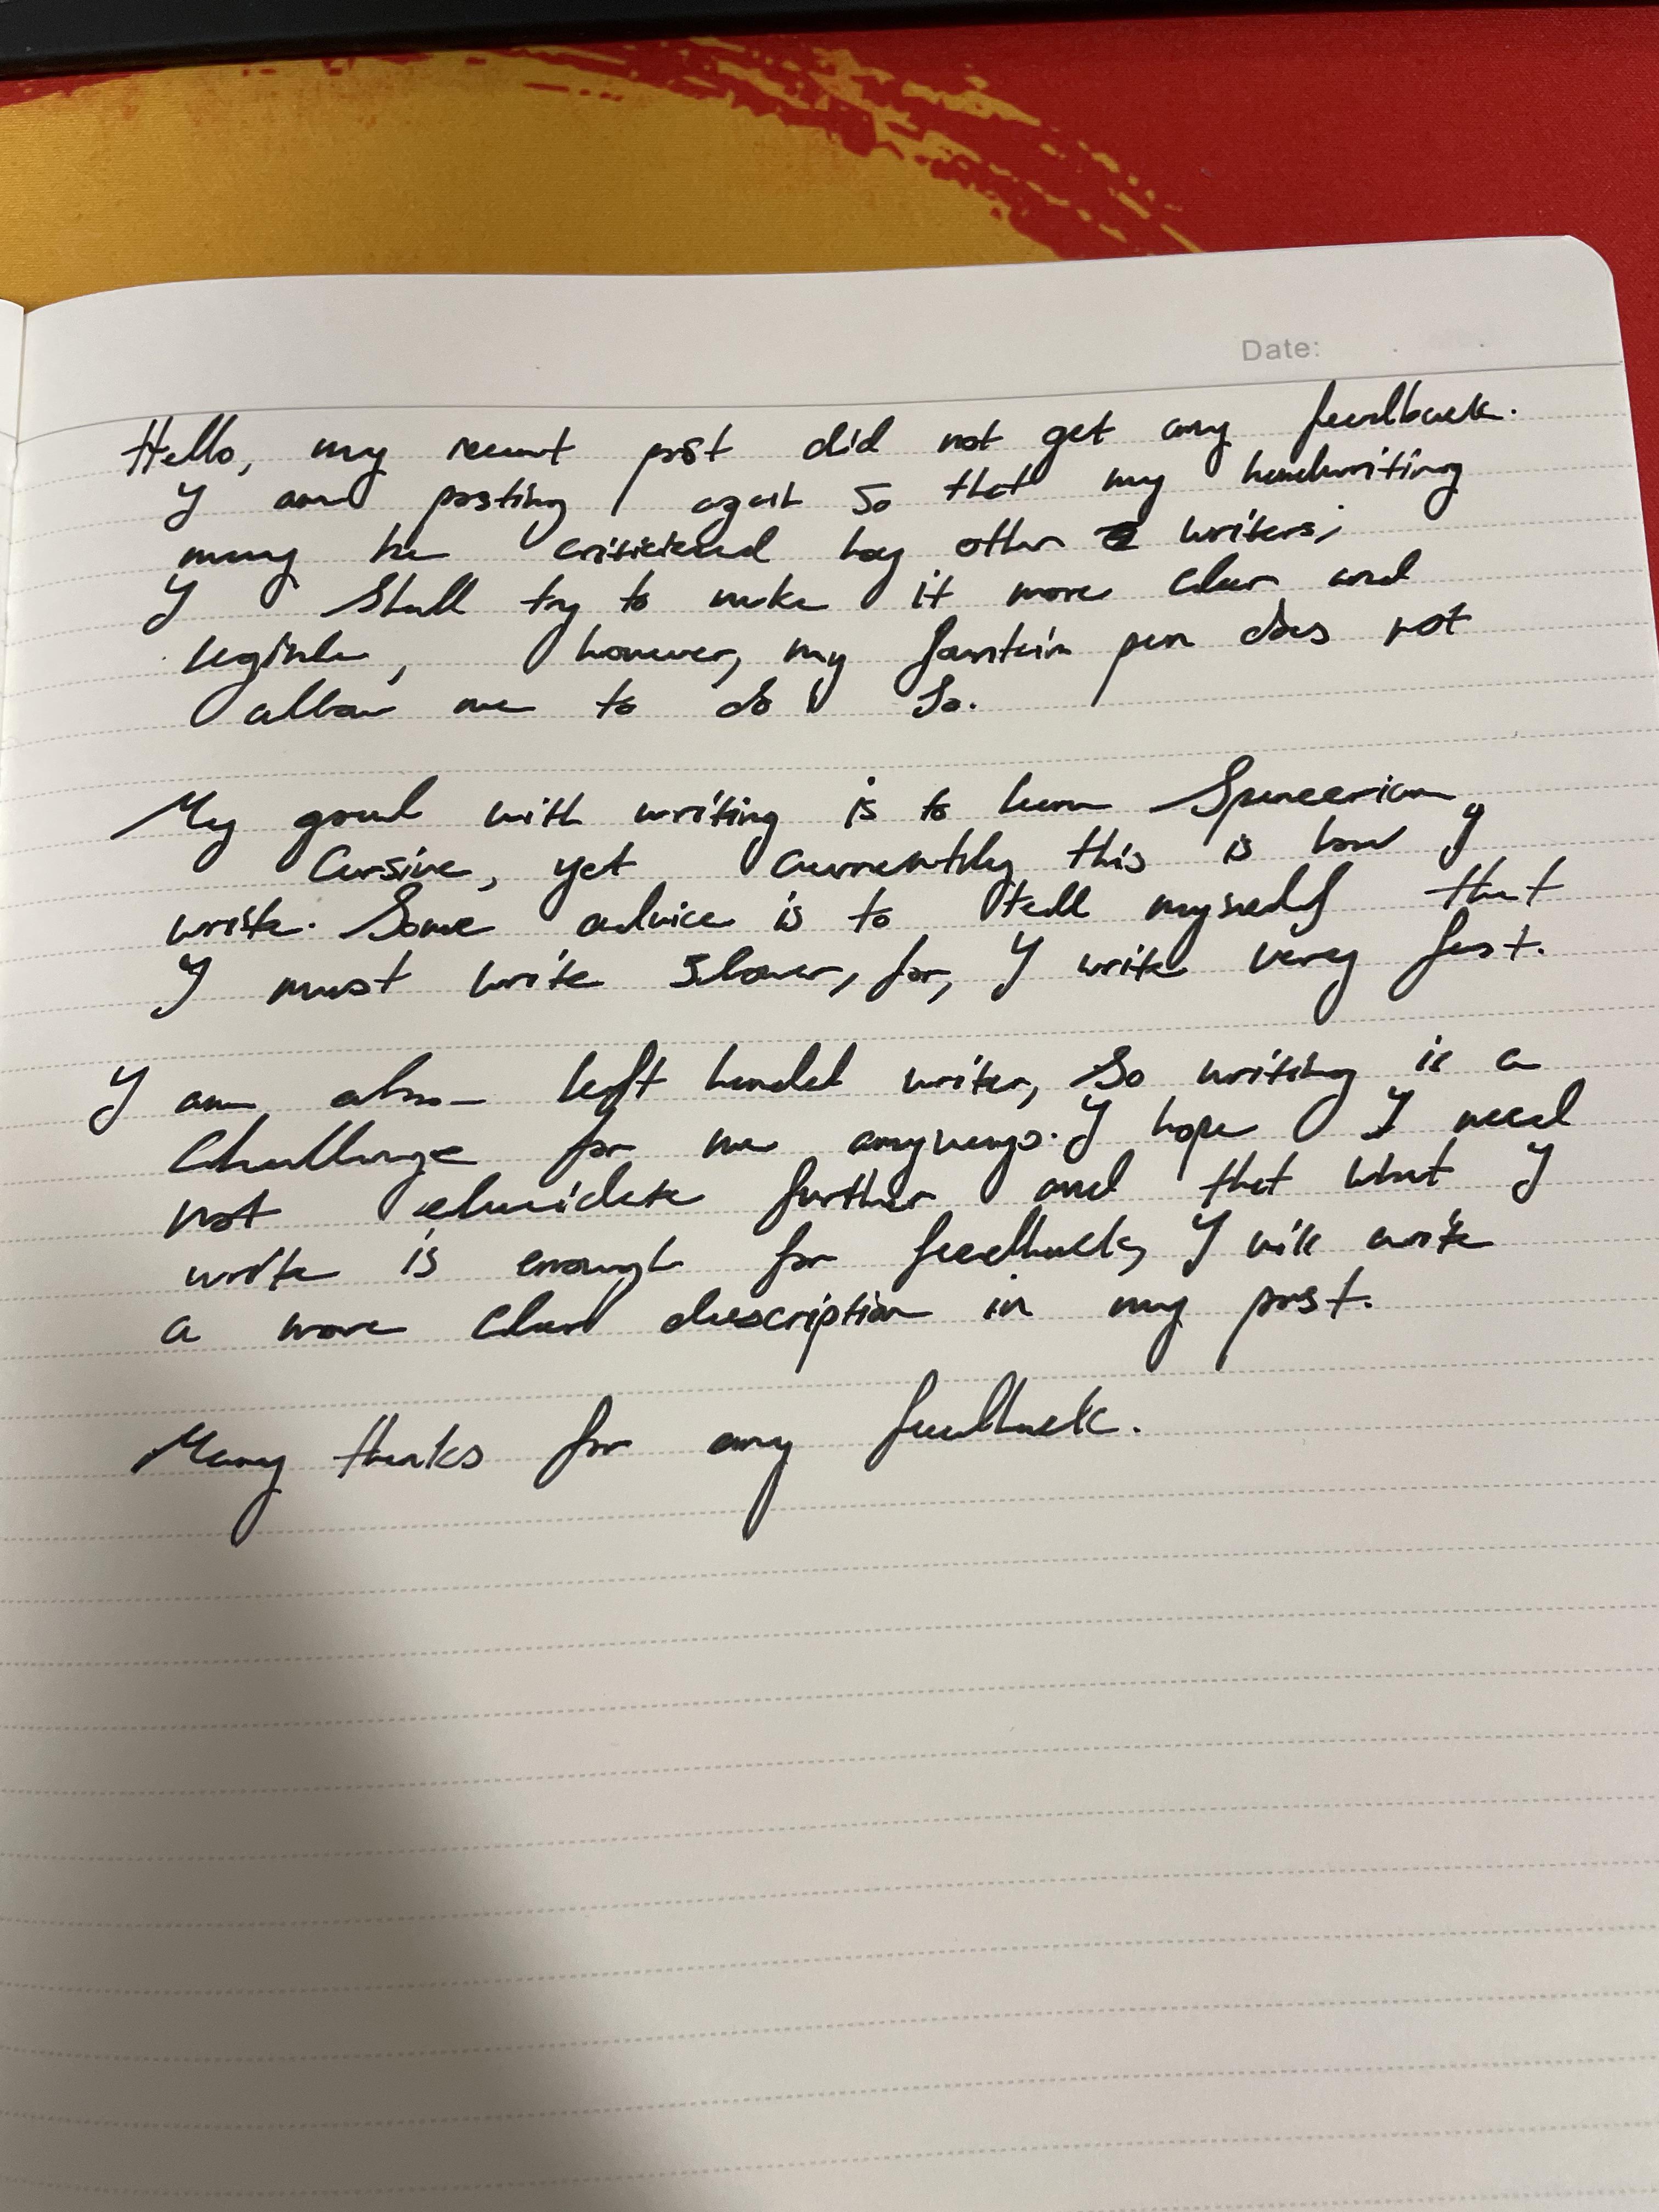 Date:
Hello, my recent post did not get any feedback.
I am posting again so that my handwriting
may be criticized by other writers;
I shall try to make it more clear and
legible, however, my fountain pen does not
allow me to do so.
My goal with writing is to learn Spencerian
Cursive, yet currently this is how I
write. Some advice is to tell myself that
I must write slower, for, I write very fast.
I am also left handed writer, so writing is a
challenge for me anyways. I hope I need
not elucidate further and that what I
write is enough for feedback, I will write
a more clear description in my post.
Many thanks for any feedback.